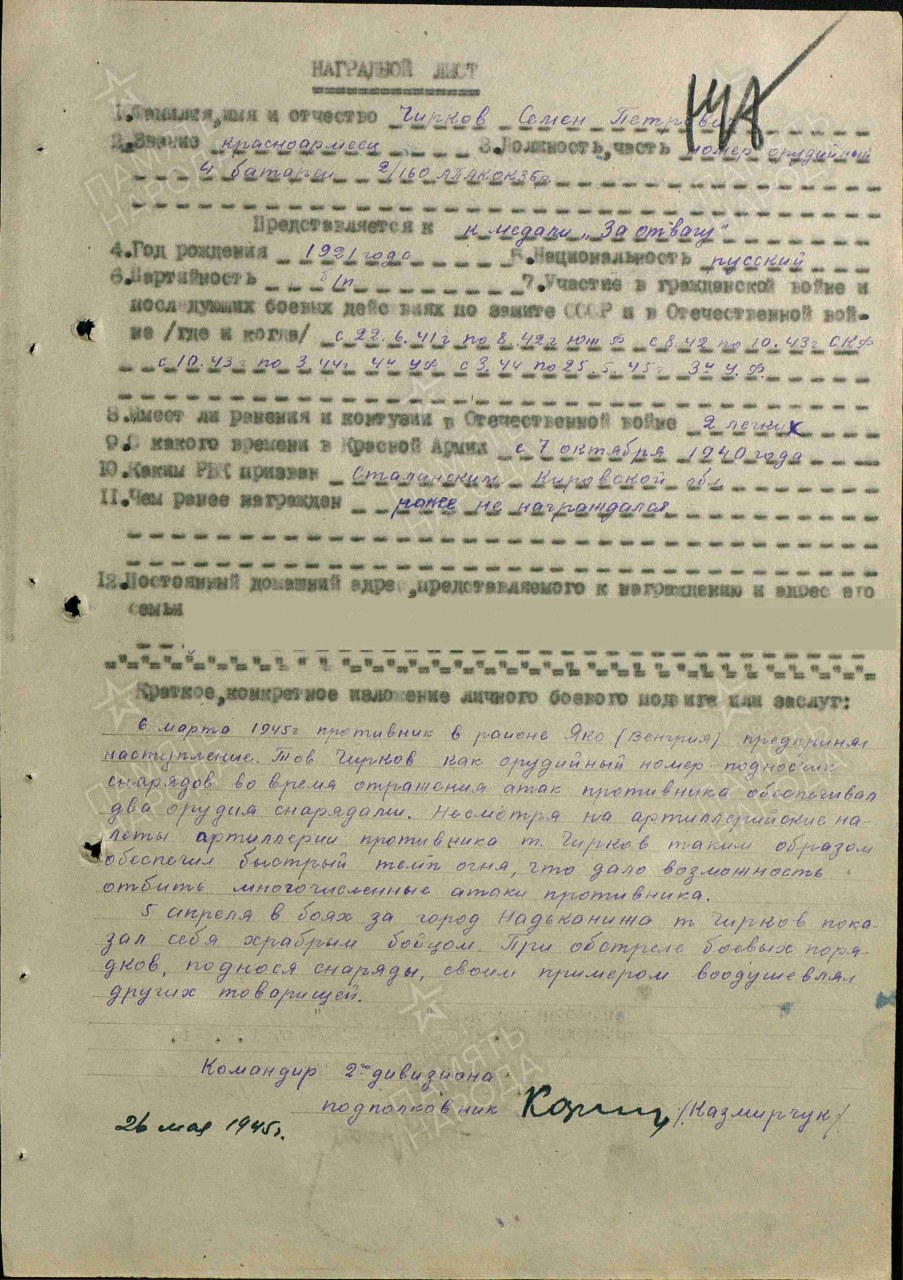 НАГРАДНОЙ ЛИСТ
1. Фамилия, имя и отчество Чирков Семен Петрович
2. Звание красноармеец 3. Должность, часть номер орудийный
4 батареи
Представляется к к медали „За отвагу"
4. Год рождения 1921 года 5. Национальность русский
6. Партийность б/п 7. Участие в гражданской войне и
последующих боевых действиях по защите СССР и в Отечественной вой-
не /где и когда/ с 22.6.41г по 8.42г Юж Ф с 8.42 по 10.43г СКФ
с 10.43г по 3.44г 4й УФ с 3.44 по 25.5.45г 3й У.Ф.
8. Имеет ли ранения и контузии в Отечественной войне 2 легких
9. С какого времени в Красной Армии с 7 октября 1940 года
10. Каким РВК призван Сталинским Кировской обл
11. Чем ранее награжден не награждался
12. Постоянный домашний адрес, представляемого к награждению и адрес его
семьи
Краткое, конкретное изложение личного боевого подвига или заслуг:
6 марта 1945г противник в районе Яко (Венгрия) предпринял
наступление. Тов Чирков как орудийный номер-подносчик
снарядов во время отражения атак противника обеспечивал
два орудия снарядами. Несмотря на артиллерийские на-
леты артиллерии противника т. Чирков таким образом
обеспечил быстрый темп огня, что дало возможность
отбить многочисленные атаки противника.
5 апреля в боях за город Надьканижа т. Чирков пока-
зал себя храбрым бойцом. При обстреле боевых поря-
дков, поднося снаряды, своим примером воодушевлял
других товарищей.
Командир 2го дивизиона
подполковник /Казмирчук/
26 мая 1945г.
ПАМЯТЬ НАРОДА